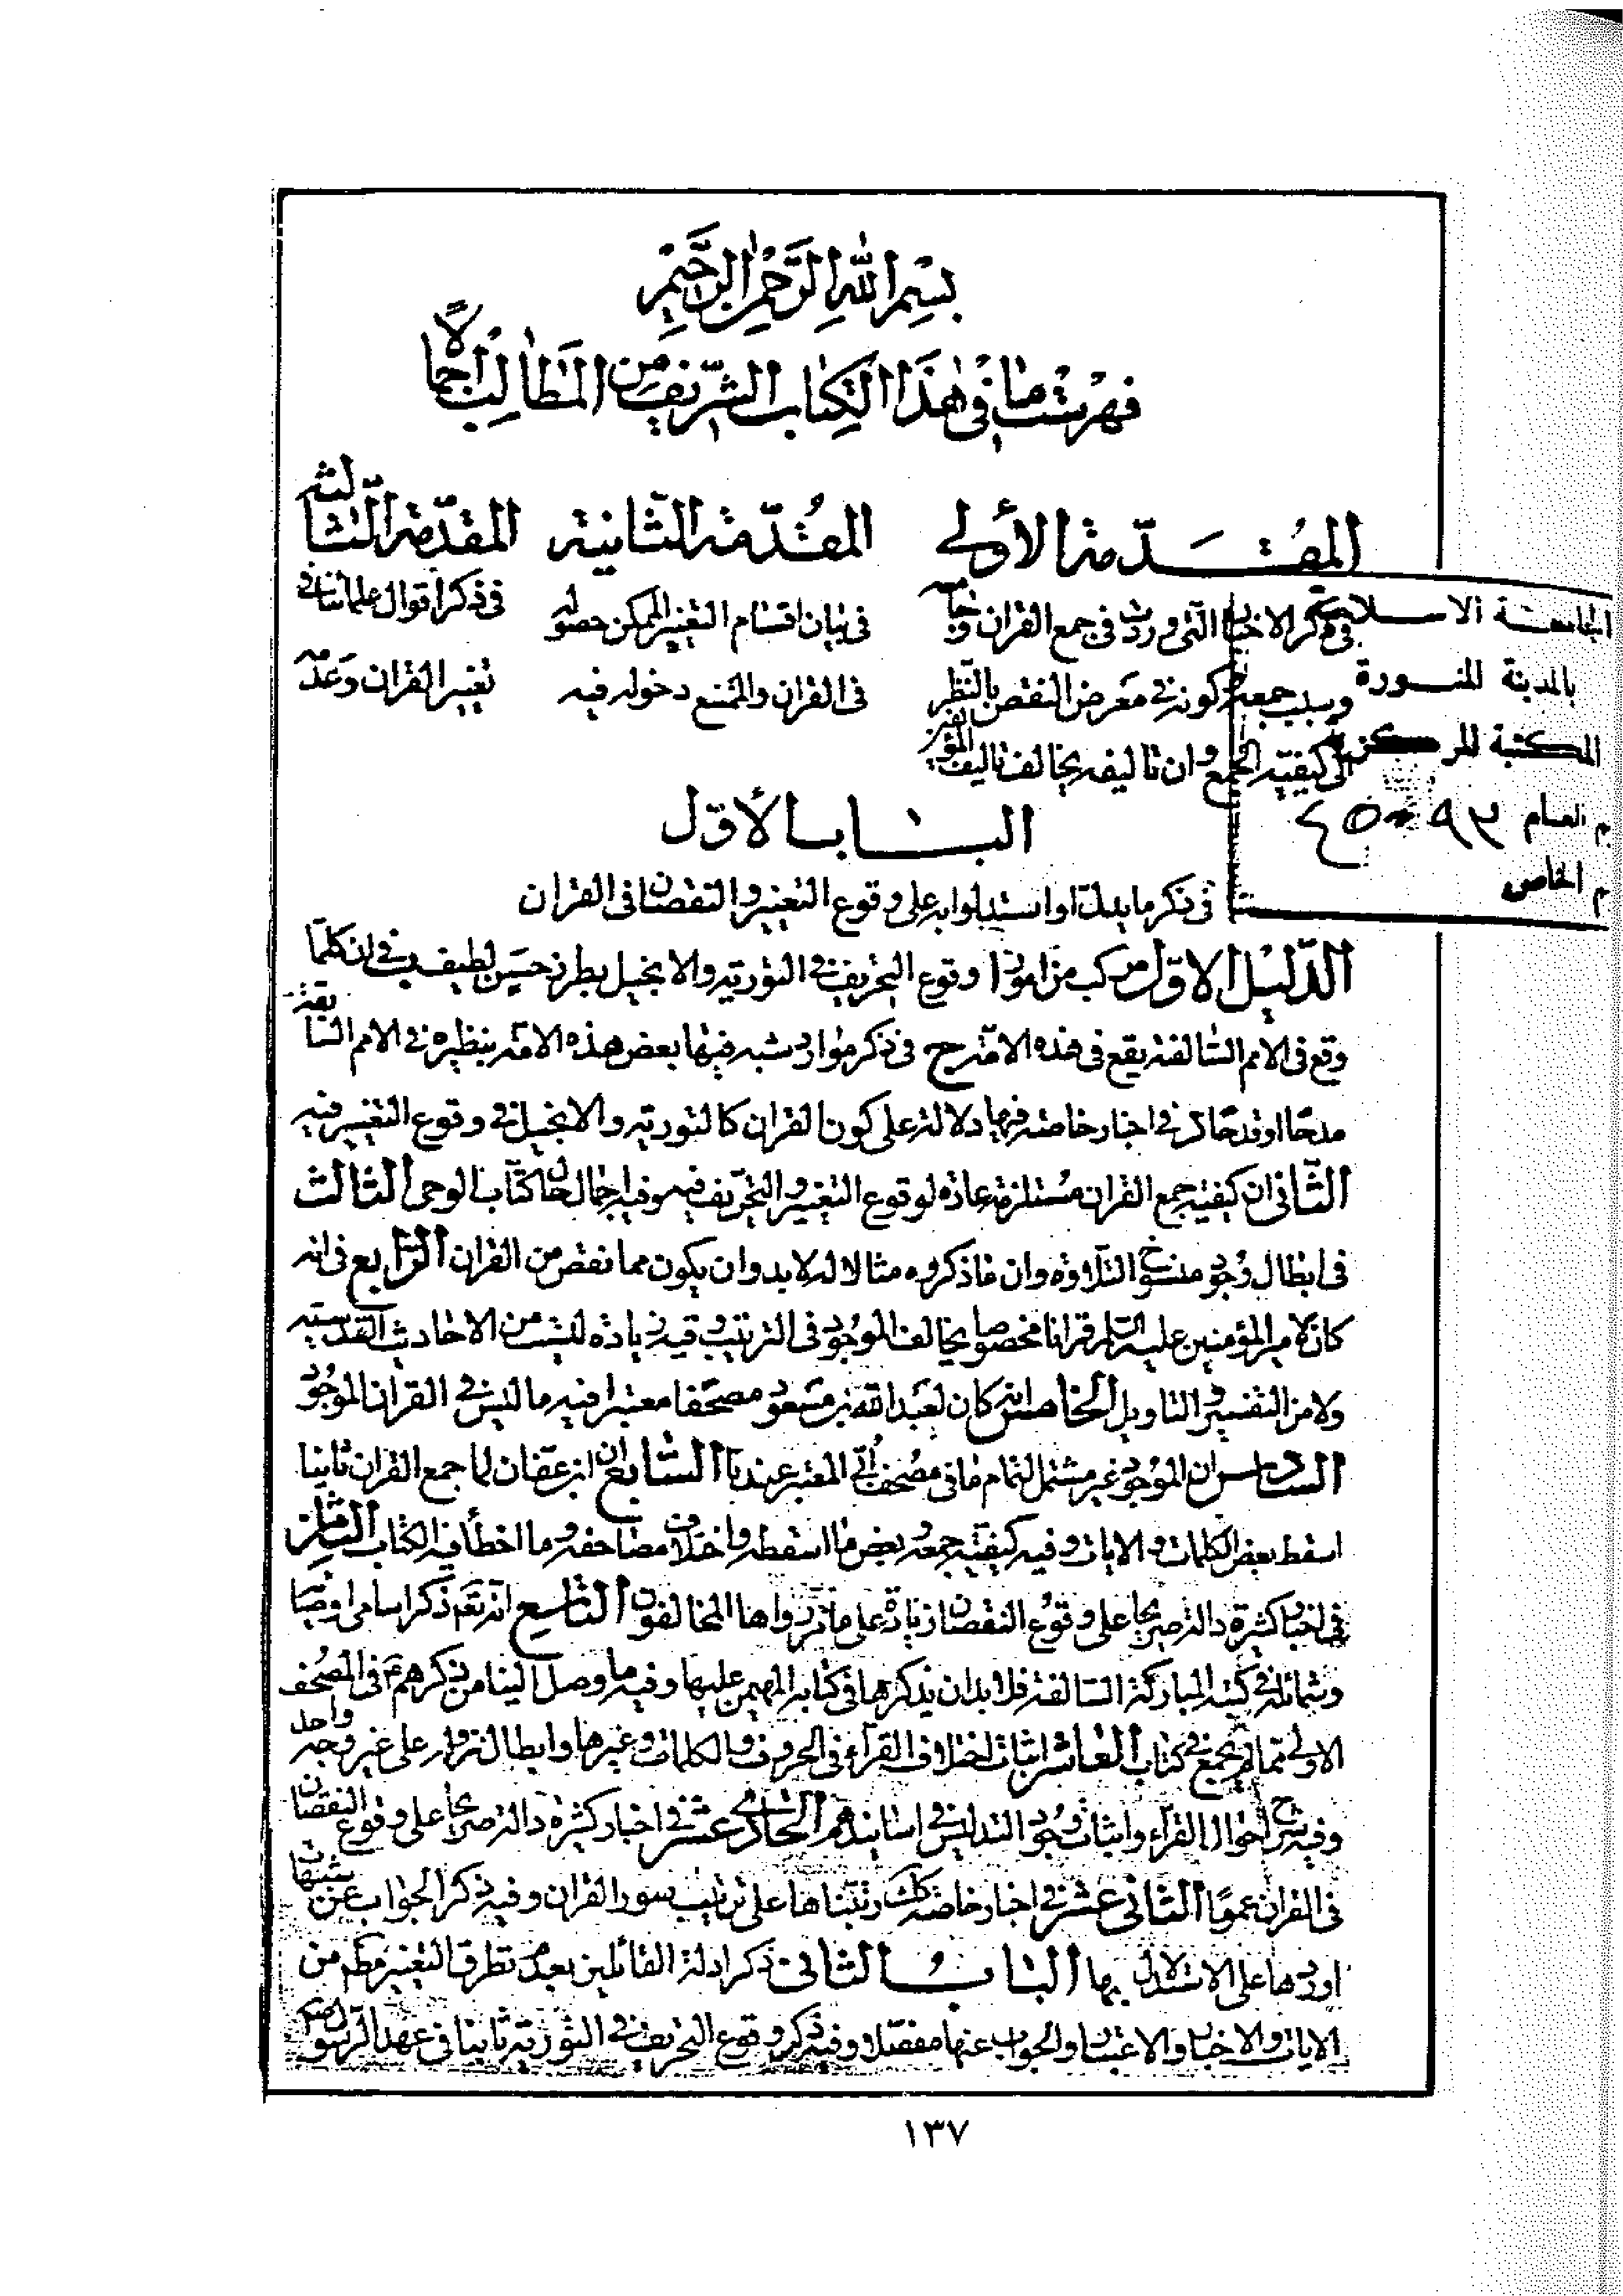 بِسْمِ اللّٰهِ الرَّحْمٰنِ الرَّحِيْمِ
فهرست ما في هذا الكتاب الشريف من المطالب اجمالا
المقدمة الأولى
في ذكر الاخبار التي وردت في جمع القران وجامعه
وسبب جمعه وكونه في معرض النقص بالنظر
الى كيفية الجمع وان تاليفه يخالف تاليف المؤلفين
المقدمة الثانية
في بيان اقسام التغيير الممكن حصوله
في القران والممتنع دخوله فيه
المقدمة الثالثة
في ذكر اقوال علمائنا في
تغيير القران وعدمه
الجامعة الاسلامية
بالمدينة المنورة
المكتبة المركزية
م العام
م الخاص
الباب الأول
في ذكر ما يدل او استدلوا به على وقوع التغيير والنقصان في القران
الدليل الاول مركب من امور ا وقوع التحريف في التورية والانجيل بطرز حسن لطيف ب في ان كلما
وقع في الامم السالفة يقع في هذه الامة ج في ذكر موارد شبه فيها بعض هذه الامة بنظيره في الامم السابقة
مدحا او قدحا د في اخبار خاصة فيها دلالة على كون القران كالتورية والانجيل في وقوع التغيير فيه
الثاني ان كيفية جمع القران مستلزمة عادة لوقوع التغيير والتحريف فيه وفيه اجمال حال كتاب الوحى الثالث
في ابطال وجود منسوخ التلاوة وان ما ذكروه مثالا له لا بد وان يكون مما نقص من القران الرابع في انه
كان لامير المؤمنين عليه السلم قرانا مخصوصا يخالف الموجود في الترتيب وفيه زيادة ليست من الاحاديث القدسية
ولا من التفسير والتاويل الخامس انه كان لعبد الله بن مسعود مصحفا معتبرا فيه ما ليس في القران الموجود
السادس ان الموجود غير مشتمل لتمام ما في مصحف ابي المعتبر عندنا السابع ان ابن عفان لما جمع القران ثانيا
اسقط بعض الكلمات والايات وفيه كيفية جمعه وبعض ما اسقطه واختلاف مصاحفه وما اخطأ فيه الكتاب الثامن
في اخبار كثيرة دالة صريحا على وقوع النقصان زيادة على ما مر رواها المخالفون التاسع انه تعم ذكر اسامى اوصيا
وشمائله في كتبه المباركة السالفة فلا بد ان يذكرها في كتابه المهيمن عليها وفيه ما وصل الينا من ذكرهم ع في الصحف
الاولى مما لم يجمع في كتاب العاشر اثبات اختلاف القراء في الحروف والكلمات وغيرها وابطال نزوله على غير وجه واحد
وفيه شرح احوال القراء واثبات وجود التدليس في اسانيدهم الحادي عشر في اخبار كثيرة دالة صريحا على وقوع النقصان
في القران عموما الثاني عشر في اخبار خاصة كك رتبناها على ترتيب سور القران وفيه ذكر الجواب عن شبهات
اوردها على الاستدلال بها الباب الثاني ذكر ادلة القائلين بعدم تطرق التغيير مطم من
الايات والاخبار والاعتبار والجواب عنها مفصلا وفيه ذكر وقوع التحريف في التورية ثانيا في عهد الرسول
١٣٧